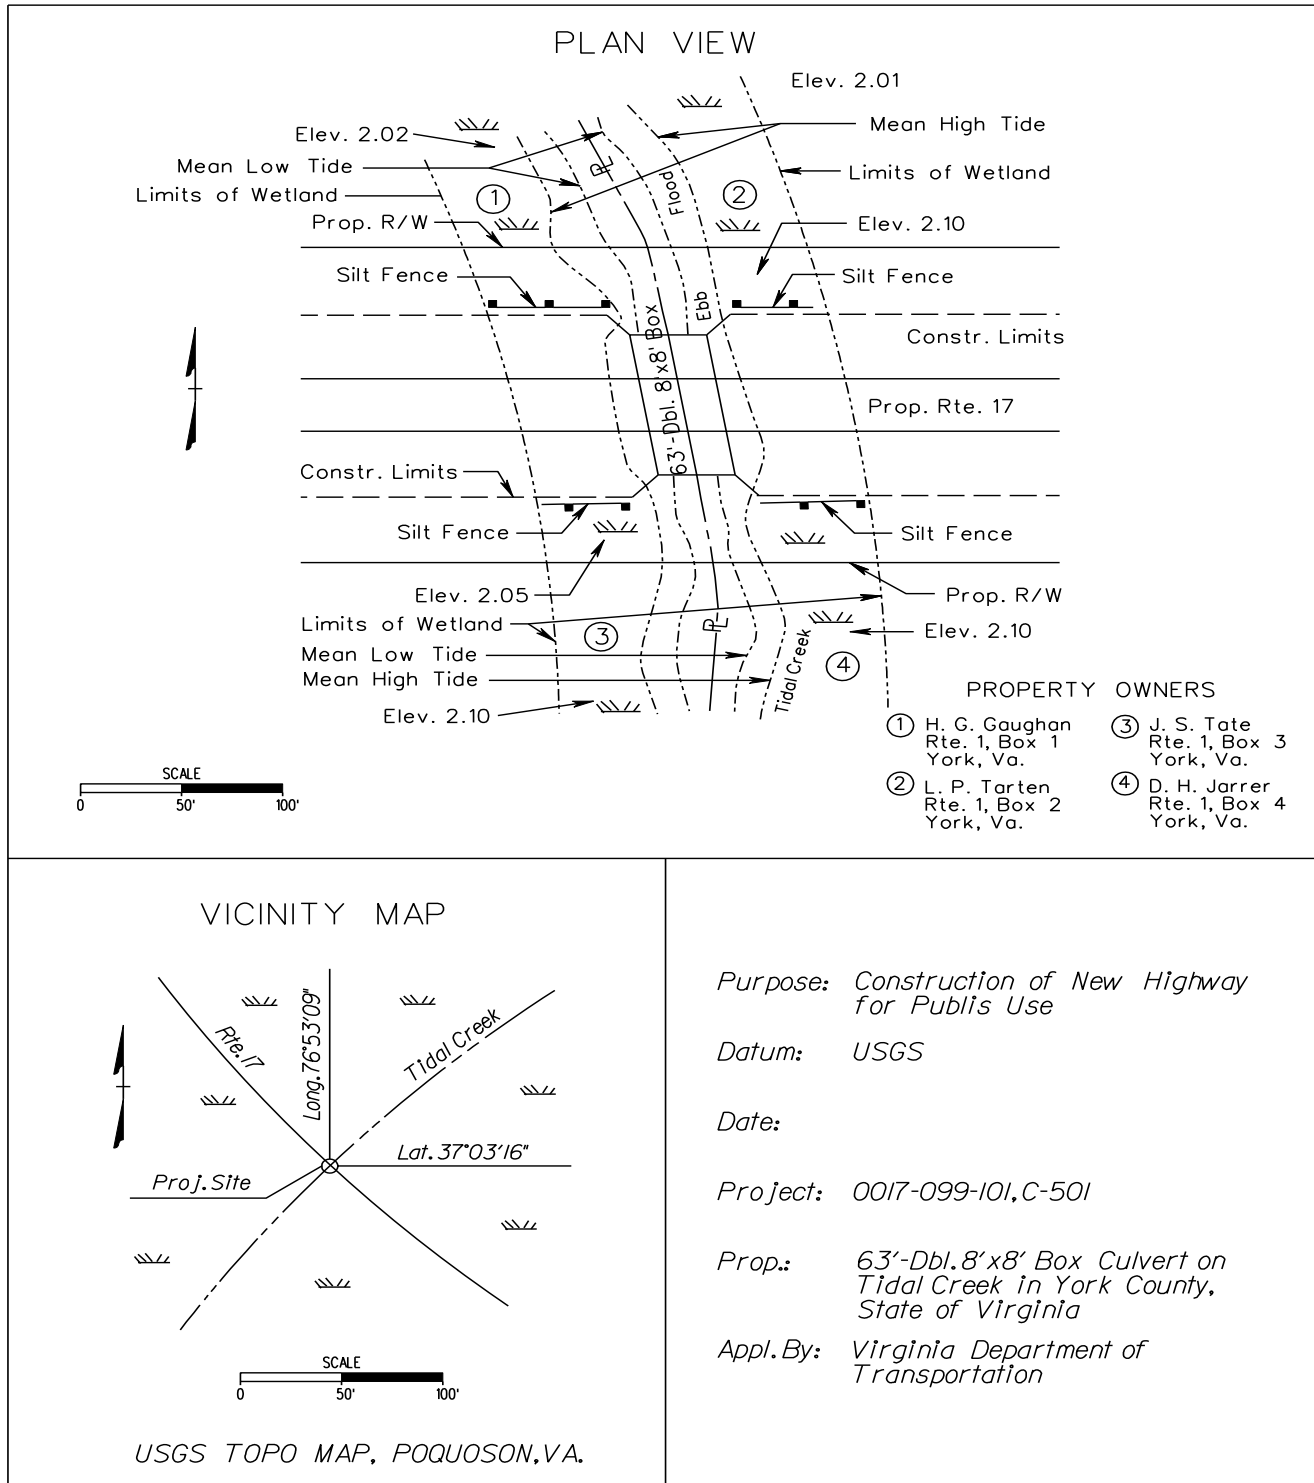 PLAN VIEW
Elev. 2.01
Elev. 2.02
Mean High Tide
Mean Low Tide
Limits of Wetland
Limits of Wetland
1
2
PL
Flood
Prop. R/W
Elev. 2.10
Silt Fence
Silt Fence
Ebb
Constr. Limits
63'-Dbl. 8'x8' Box
Prop. Rte. 17
Constr. Limits
Silt Fence
Silt Fence
Elev. 2.05
Prop. R/W
Limits of Wetland
3
PL
Elev. 2.10
Mean Low Tide
Mean High Tide
Tidal Creek
4
Elev. 2.10
PROPERTY OWNERS
1 H. G. Gaughan
Rte. 1, Box 1
York, Va.
2 L. P. Tarten
Rte. 1, Box 2
York, Va.
3 J. S. Tate
Rte. 1, Box 3
York, Va.
4 D. H. Jarrer
Rte. 1, Box 4
York, Va.
SCALE
0 50' 100'
VICINITY MAP
Rte. 17
Long. 76°53'09"
Tidal Creek
Lat. 37°03'16"
Proj. Site
SCALE
0 50' 100'
USGS TOPO MAP, POQUOSON, VA.
Purpose: Construction of New Highway
for Publis Use
Datum: USGS
Date:
Project: 0017-099-101, C-501
Prop.: 63'-Dbl. 8'x8' Box Culvert on
Tidal Creek in York County,
State of Virginia
Appl. By: Virginia Department of
Transportation